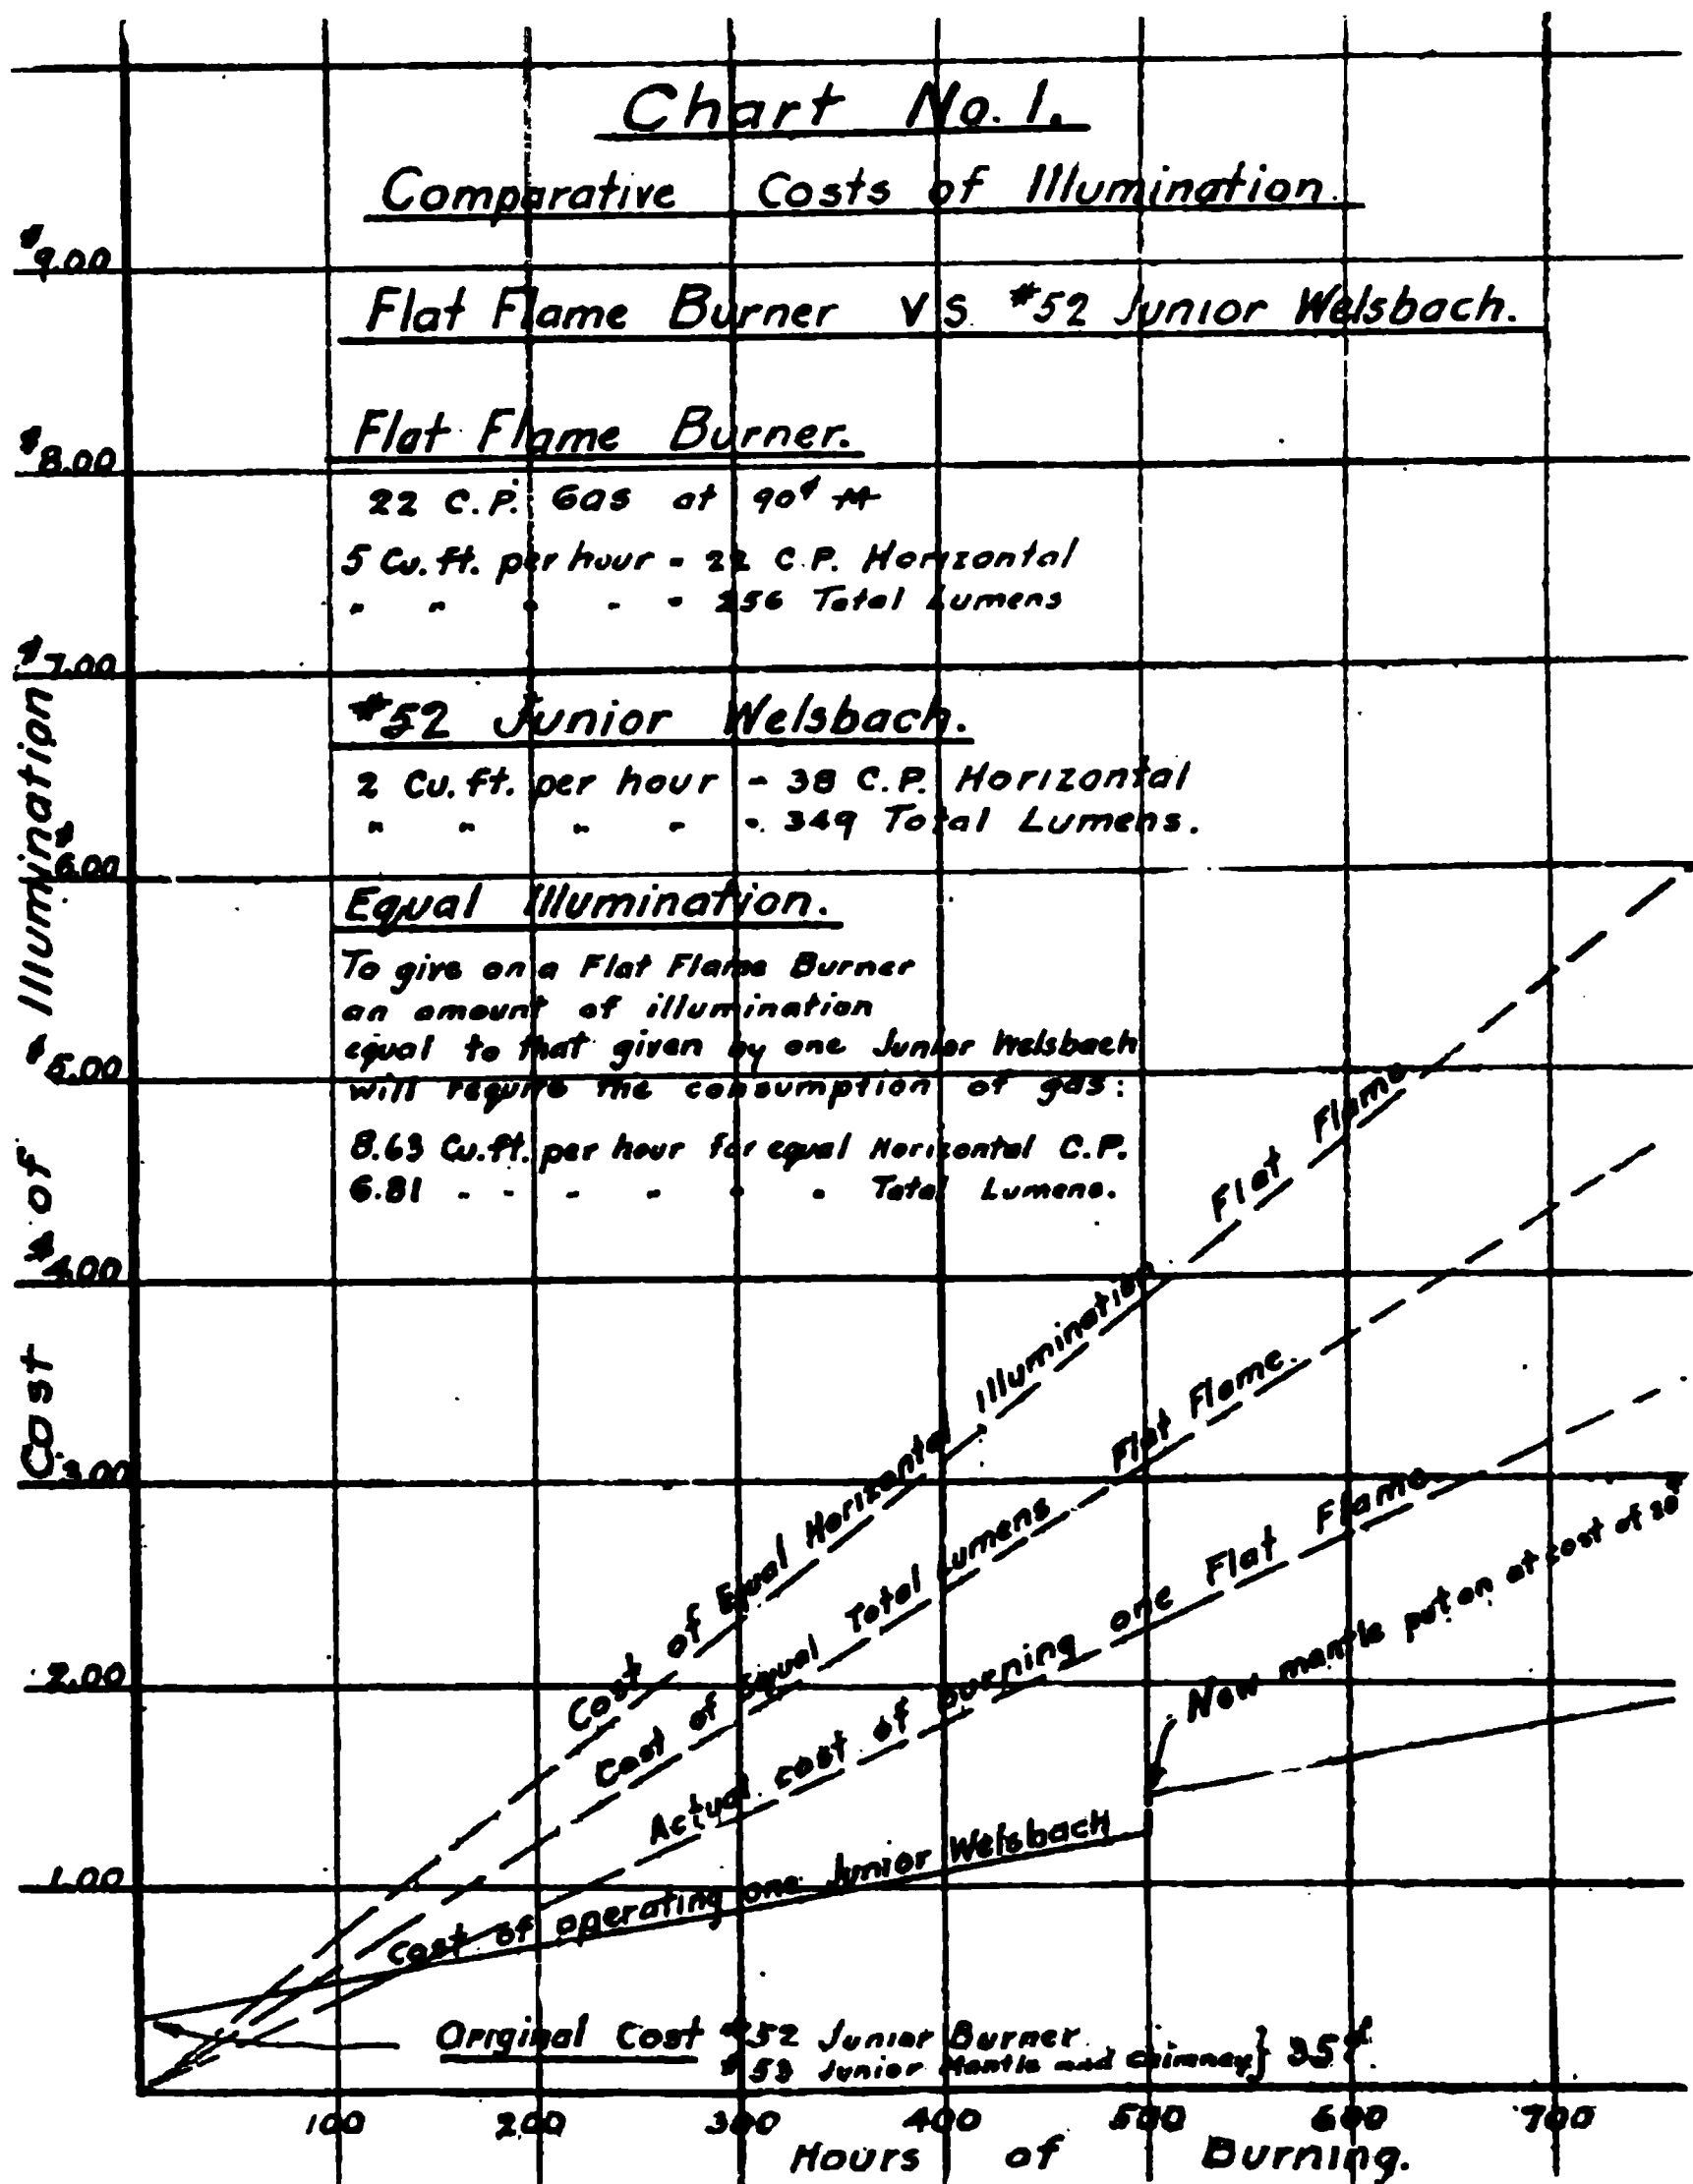 Chart No. 1.
Comparative Costs of Illumination.
Flat Flame Burner VS #52 Junior Welsbach.
Flat Flame Burner.
22 C.P. Gas at 90¢ M
5 Cu. ft. per hour - 22 C.P. Horizontal
" " " " " 256 Total Lumens
#52 Junior Welsbach.
2 Cu. ft. per hour - 38 C.P. Horizontal
" " " " " 349 Total Lumens.
Equal Illumination.
To give on a Flat Flame Burner
an amount of illumination
equal to that given by one Junior Welsbach
will require the consumption of gas:
8.63 Cu. ft. per hour for equal Horizontal C.P.
6.81 " " " " " " Total Lumens.
Cost of Illumination
$9.00
$8.00
$7.00
$6.00
$5.00
$4.00
3.00
2.00
1.00
Cost of Equal Horizontal Illumination Flat Flame
Cost of Equal Total Lumens Flat Flame.
Actual cost of burning one Flat Flame
New mantle put on at cost of 20¢
Cost of operating one Junior Welsbach
Original Cost #52 Junior Burner
#53 Junior Mantle and Chimney} 35¢
100 200 300 400 500 600 700
Hours of Burning.